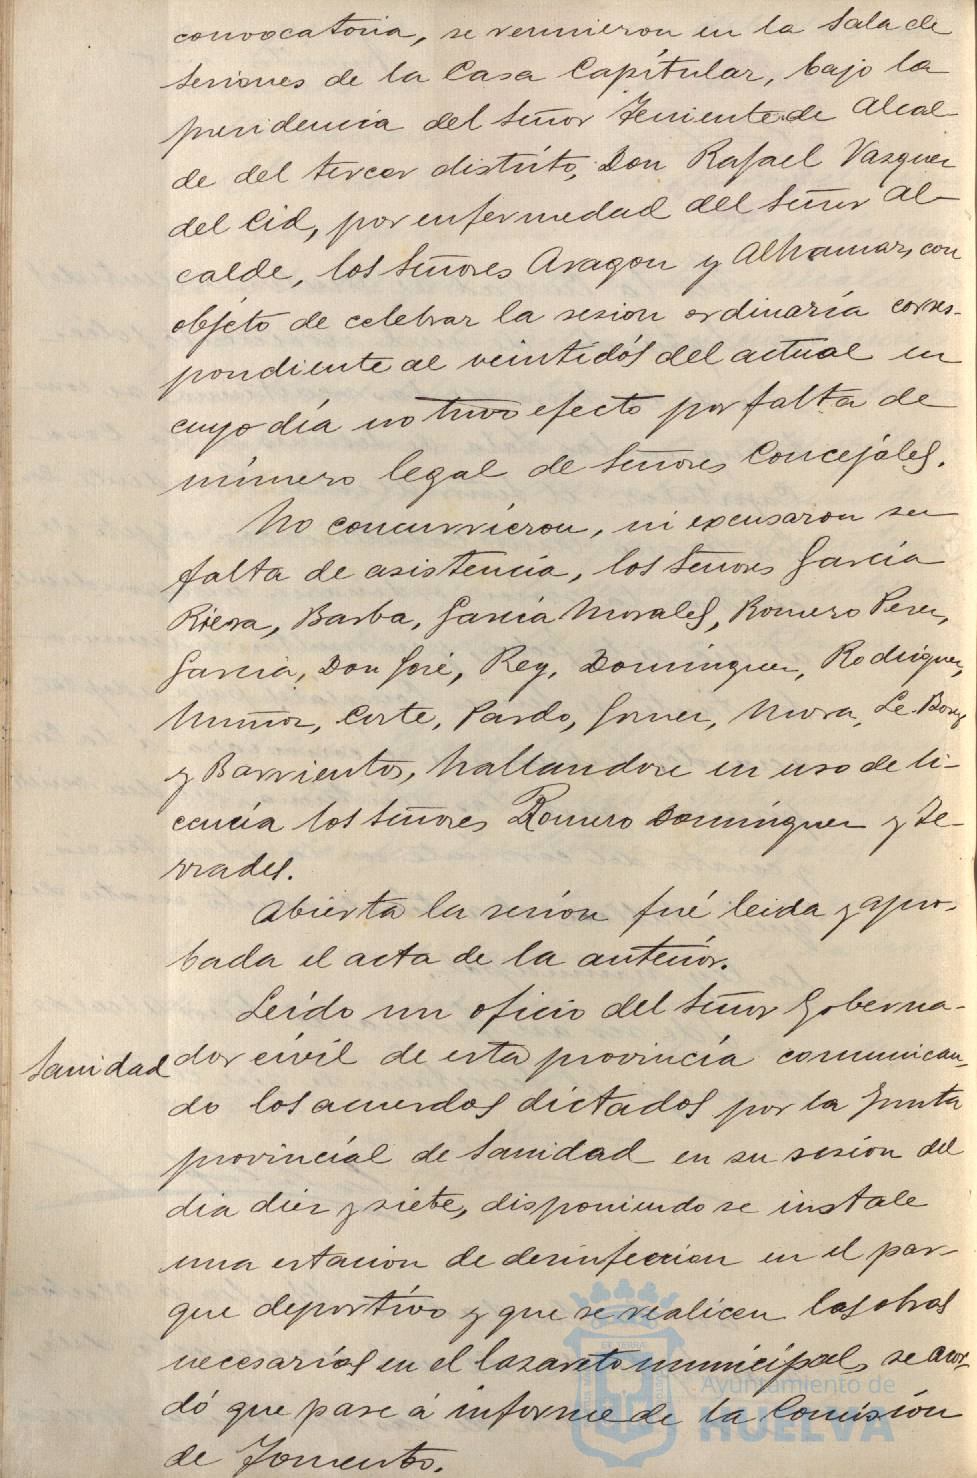 convocatoria, se reunieron en la Sala de
Sesiones de la Casa Capitular, bajo la
presidencia del Señor Teniente de Alcal-
de del tercer distrito, Don Rafael Vazquez
del Cid, por enfermedad del Señor Al-
calde, los Señores Aragon y Alhamar, con
objeto de celebrar la sesion ordinaria corres-
pondiente al veintidós del actual en
cuyo día no tuvo efecto por falta de
número legal de Señores Concejales.
No concurrieron, ni excusaron su
falta de asistencia, los Señores García
Riera, Barba, García Morales, Romero Perez,
García, Don José, Rey, Domínguez, Rodríguez,
Muñoz, Corte, Pardo, Mora, Le-Bourg
y Barrientos, hallandose en uso de li-
cencia los Señores Romero Domínguez y Te-
rrades.
Abierta la sesion fué leida y apro-
bada el acta de la anterior.
Leído un oficio del Señor Goberna-
Sanidad dor civil de esta provincia comunican-
do los acuerdos dictados por la Junta
provincial de Sanidad en su sesion del
dia diez y siete, disponiendo se instale
una estacion de desinfeccion en el par-
que deportivo y que se realicen las obras
necesarias en el lazareto municipal, se acor-
dó que pase á informe de la Comisión
de Fomento.
Ayuntamiento de
HUELVA